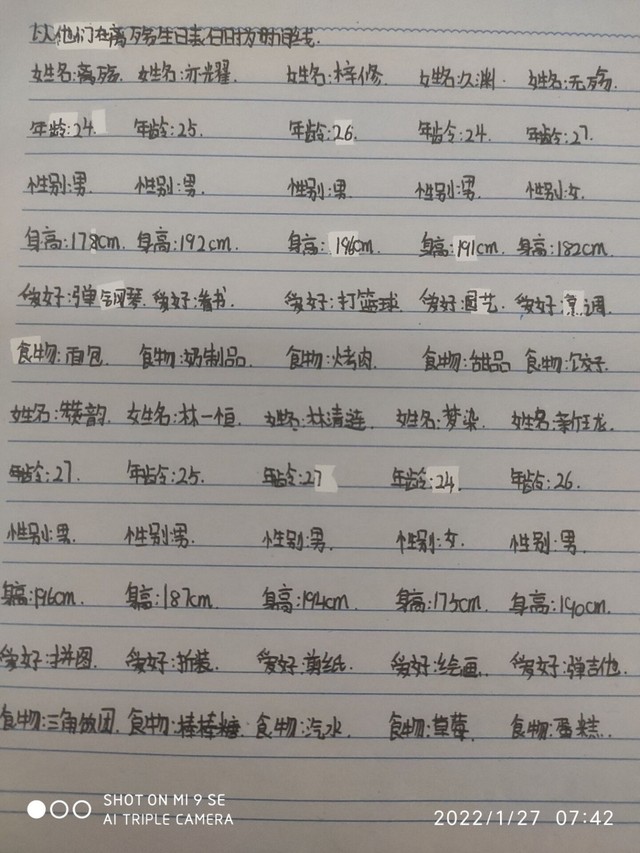 姓名:离殇. 姓名:亦光耀. 姓名:梓修. 姓名:久渊. 姓名:无殇.
年龄:24. 年龄:25. 年龄:26. 年龄:24. 年龄:27.
性别:男. 性别:男. 性别:男. 性别:男. 性别:女.
身高:178cm. 身高:192cm. 身高:196cm. 身高:191cm. 身高:182cm.
爱好:弹钢琴. 爱好:看书. 爱好:打篮球. 爱好:园艺. 爱好:烹调.
食物:面包. 食物:奶制品. 食物:烤肉. 食物:甜品 食物:饺子.
姓名: 姓名:林一恒. 姓名:林清涟. 姓名:梦染. 姓名:龙.
年龄:27. 年龄:25. 年龄:27 年龄:24. 年龄:26.
性别:男. 性别:男. 性别:男. 性别:女. 性别:男.
身高:196cm. 身高:187cm. 身高:194cm. 身高:175cm. 身高:190cm.
爱好:拼图. 爱好:折装. 爱好:剪纸. 爱好:绘画. 爱好:弹吉他.
食物:三角饭团. 食物:棒棒糖. 食物:汽水. 食物:草莓. 食物:蛋糕.
SHOT ON MI 9 SE
AI TRIPLE CAMERA
2022/1/27 07:42